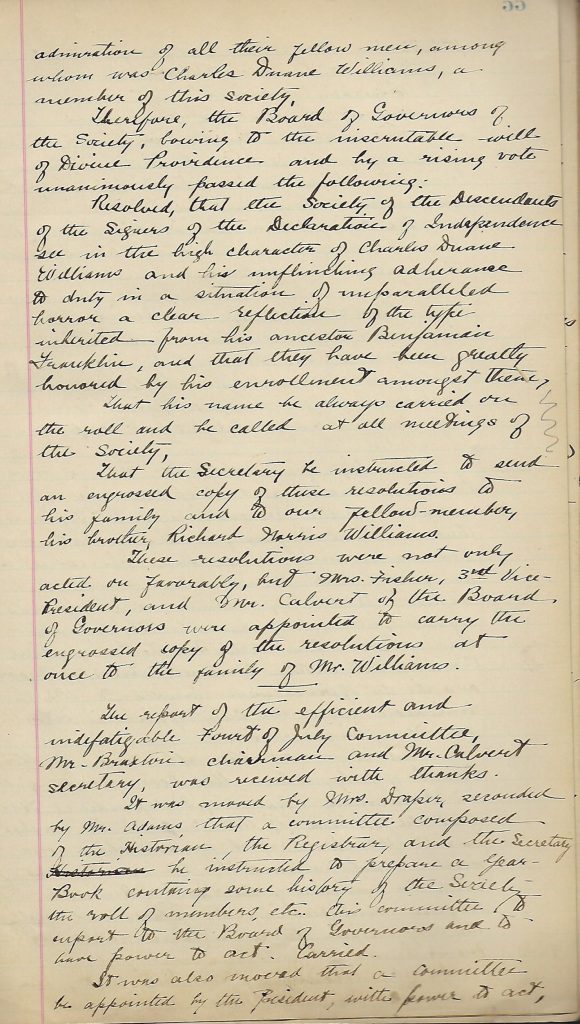 55
admiration of all their fellow men, among
whom was Charles Duane Williams, a
member of this society.
Therefore, the Board of Governors of
the Society, bowing to the inscrutable will
of Divine Providence and by a rising vote
unanimously passed the following:
Resolved, that the Society of the Descendants
of the Signers of the Declaration of Independence
see in the high character of Charles Duane
Williams and his unflinching adherance
to duty in a situation of unparalleled
horror a clear reflection of the type
inherited from his ancestor Benjamin
Franklin, and that they have been greatly
honored by his enrollment amongst them,
That his name be always carried on
the roll and be called at all meetings of
the Society,
That the Secretary be instructed to send
an engrossed copy of these resolutions to
his family and to our fellow-member,
his brother, Richard Norris Williams.
These resolutions were not only
acted on favorably, but Mrs. Fisher, 3rd Vice-
President, and Mr. Calvert of the Board
of Governors were appointed to carry the
engrossed copy of the resolutions at
once to the family of Mr. Williams.
The report of the efficient and
indefatigable Fourt of July Committee,
Mr. Braxton chairman and Mr. Calvert
secretary, was received with thanks.
It was moved by Mrs. Draper, seconded
by Mr. Adams that a committee composed
of the Historian, the Registrar, and the Secretary
Historian be instructed to prepare a Year-
Book containg some history of the Society
the roll of members, etc. this committee to
report to the Board of Governors and to
have power to act. Carried.
It was also moved that a committee
be appointed by the President, with power to act,